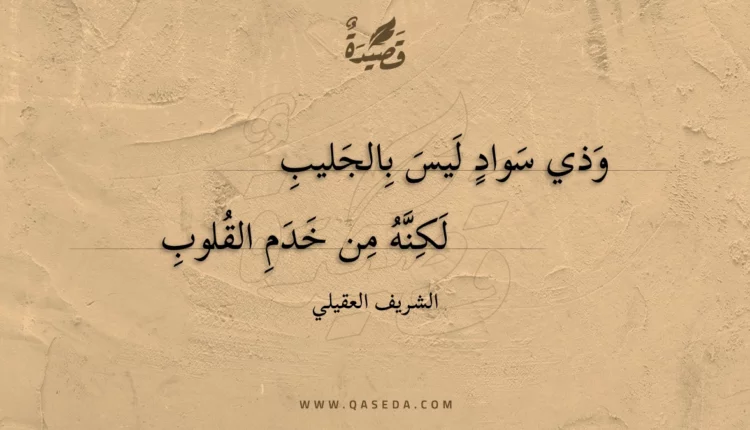 قَصِيْدَةٌ
وَذي سَوادٍ لَيسَ بِالجَليبِ
لَكِنَّهُ مِن خَدَمِ القُلوبِ
الشريف العقيلي
WWW.QASEDA.COM